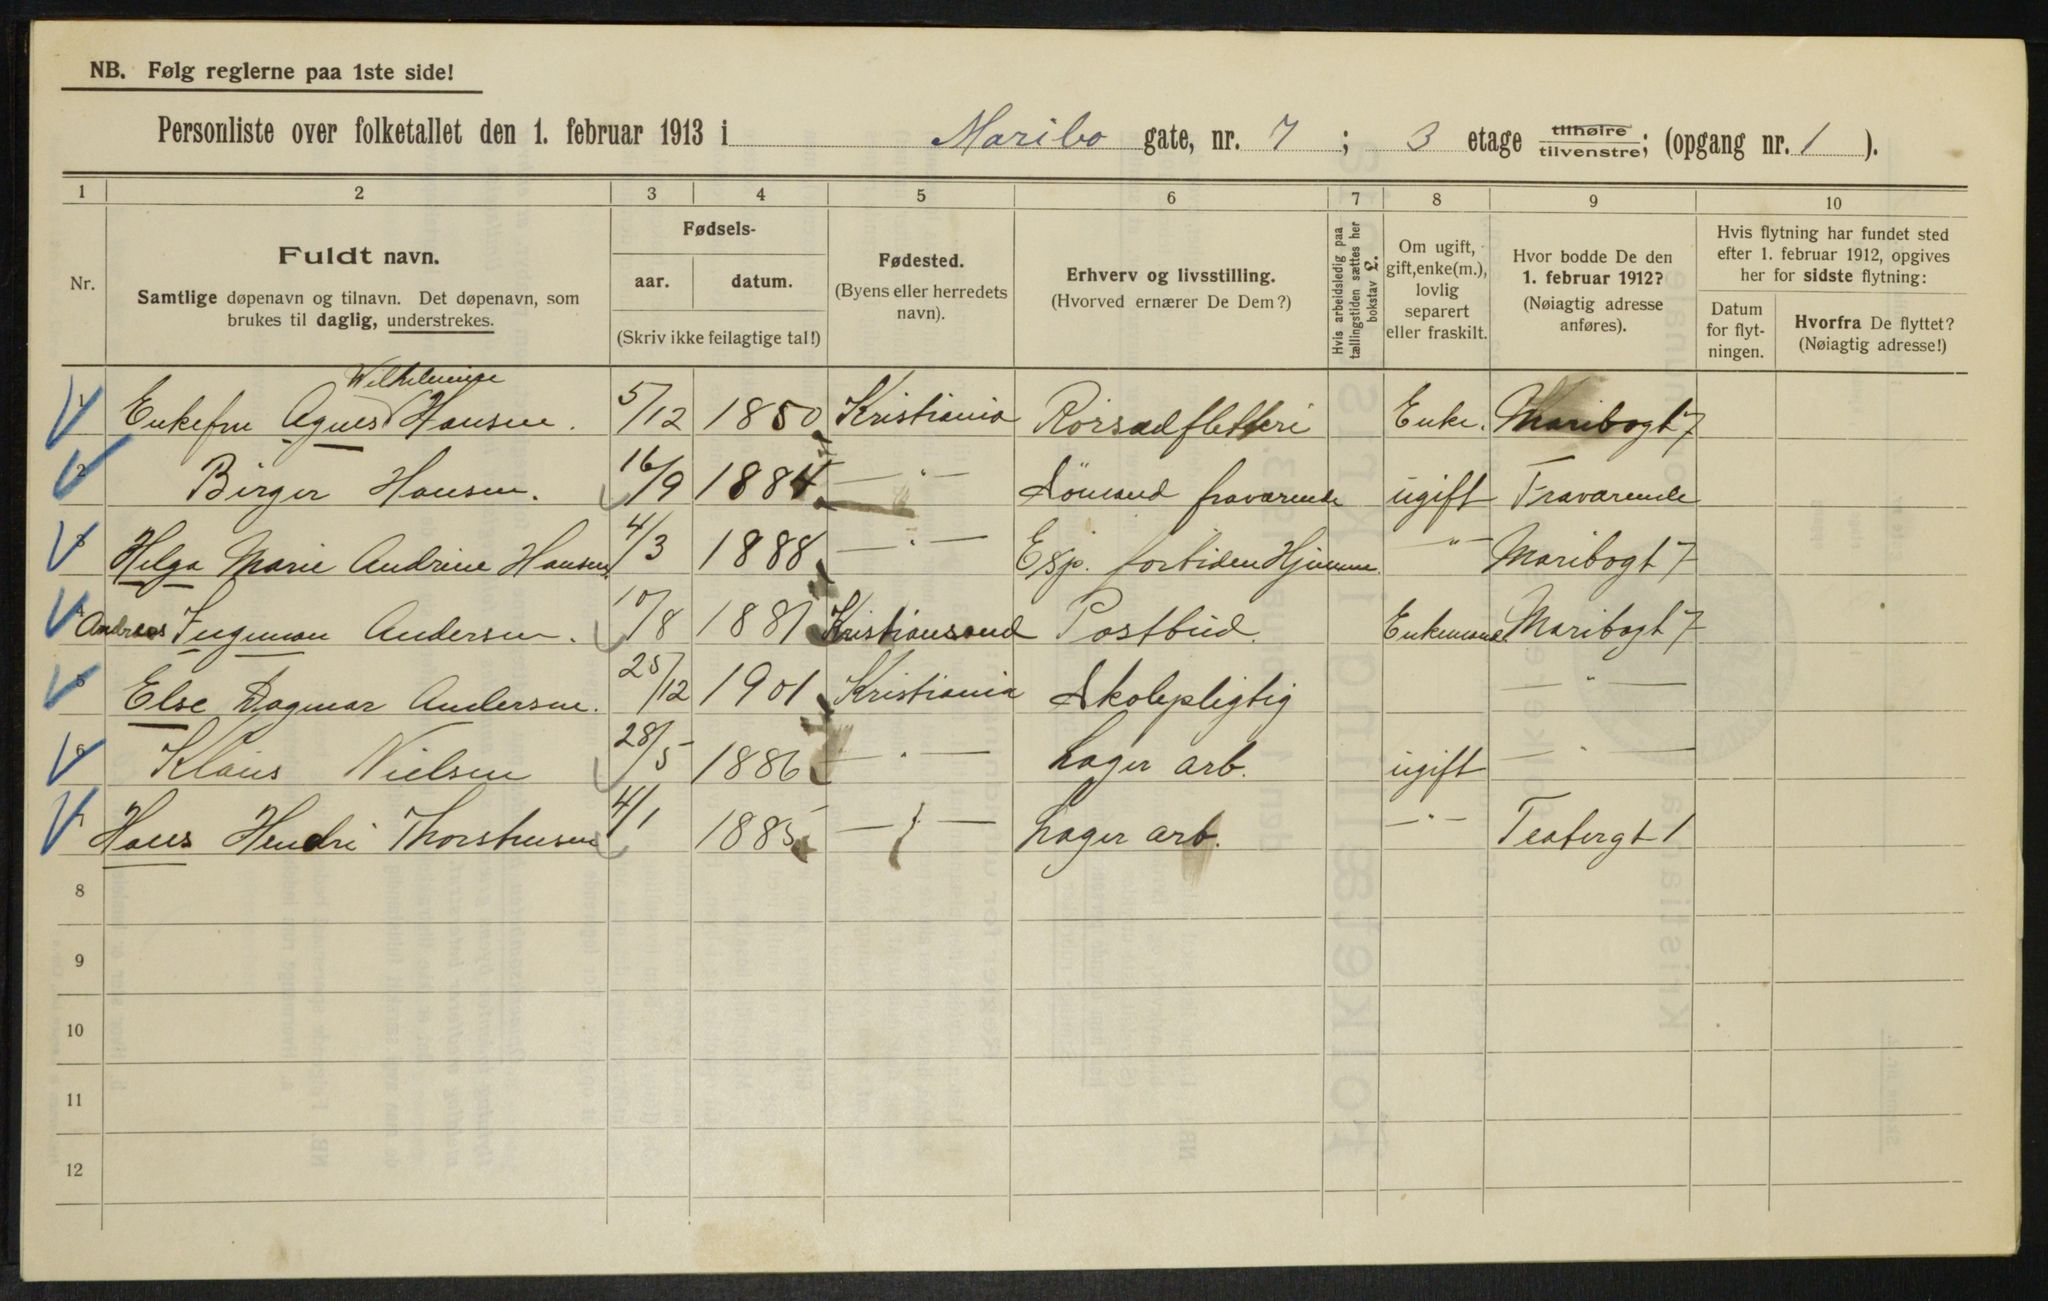 NB. Følg reglerne paa 1ste side!
Personliste over folketallet den 1. februar 1913 i Maribo gate, nr. 7 ; 3 etage tilhøire tilvenstre; (opgang nr. 1 ).
1 2 3 4 5 6 7 8 9 10
Nr.
Fuldt navn.
Samtlige døpenavn og tilnavn. Det døpenavn, som
brukes til daglig, understrekes.
Fødsels-
aar. datum.
(Skriv ikke feilagtige tal!)
Fødested.
(Byens eller herredets
navn).
Erhverv og livsstilling.
(Hvorved ernærer De Dem?)
Hvis arbeidsledig paa
tællingstiden sættes her
bokstav L.
Om ugift,
gift, enke(m.),
lovlig
separert
eller fraskilt.
Hvor bodde De den
1. februar 1912?
(Nøiagtig adresse
anføres).
Hvis flytning har fundet sted
efter 1. februar 1912, opgives
her for sidste flytning:
Datum
for flyt-
ningen.
Hvorfra De flyttet?
(Nøiagtig adresse!)
Wilhelmine
1 Enkefru Agnes Hansen. 5/12 1850 Kristiania Rörsadfletteri Enke. Maribogt 7
2 Birger Hansen. 16/9 1884 — " — Sömand fraværende ugift Fraværende
3 Helga Marie Andrine Hansen 4/3 1888 — " — Exp. fortiden Hjemme. — " — Maribogt 7
4 Andreas Ingeman Andersen. 10/8 1881 Kristiansand Postbud. Enkemand Maribogt 7
5 Else Dagmar Andersen. 25/12 1901 Kristiania Skolepligtig — " —
6 Klaus Nielsen 28/5 1886 — " — Lager arb. ugift — " —
7 Hans Hendri Thorstensen 4/1 1885 — " — Lager arb. — " — Teatergt 1
8
9
10
11
12